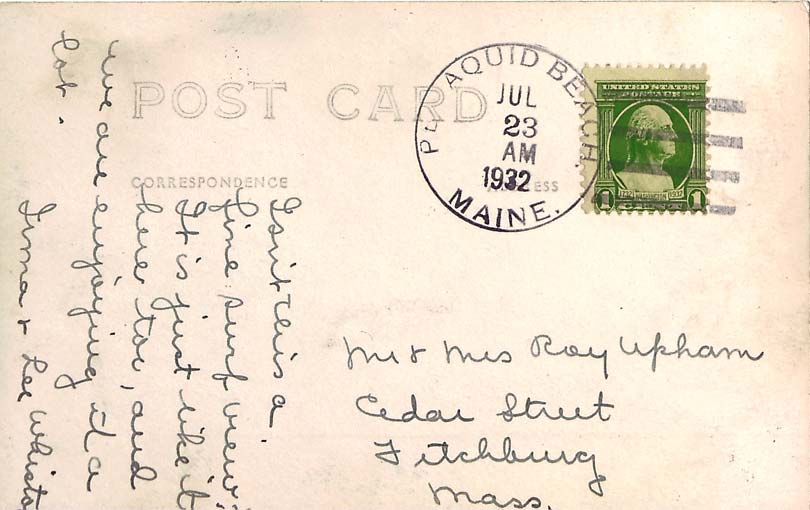 POST CARD
CORRESPONDENCE
AQUID BEACH.
JUL
23
AM
1932
MAINE.
UNITED STATES
POSTAGE
1732 WASHINGTON 1932
1 1
Isn't this a
fine surf view?
It is just like it
here too, and
we are enjoying it a
lot.
Irma & Lee
Mr & Mrs Roy Upham
Cedar Street
Fitchburg
Mass.